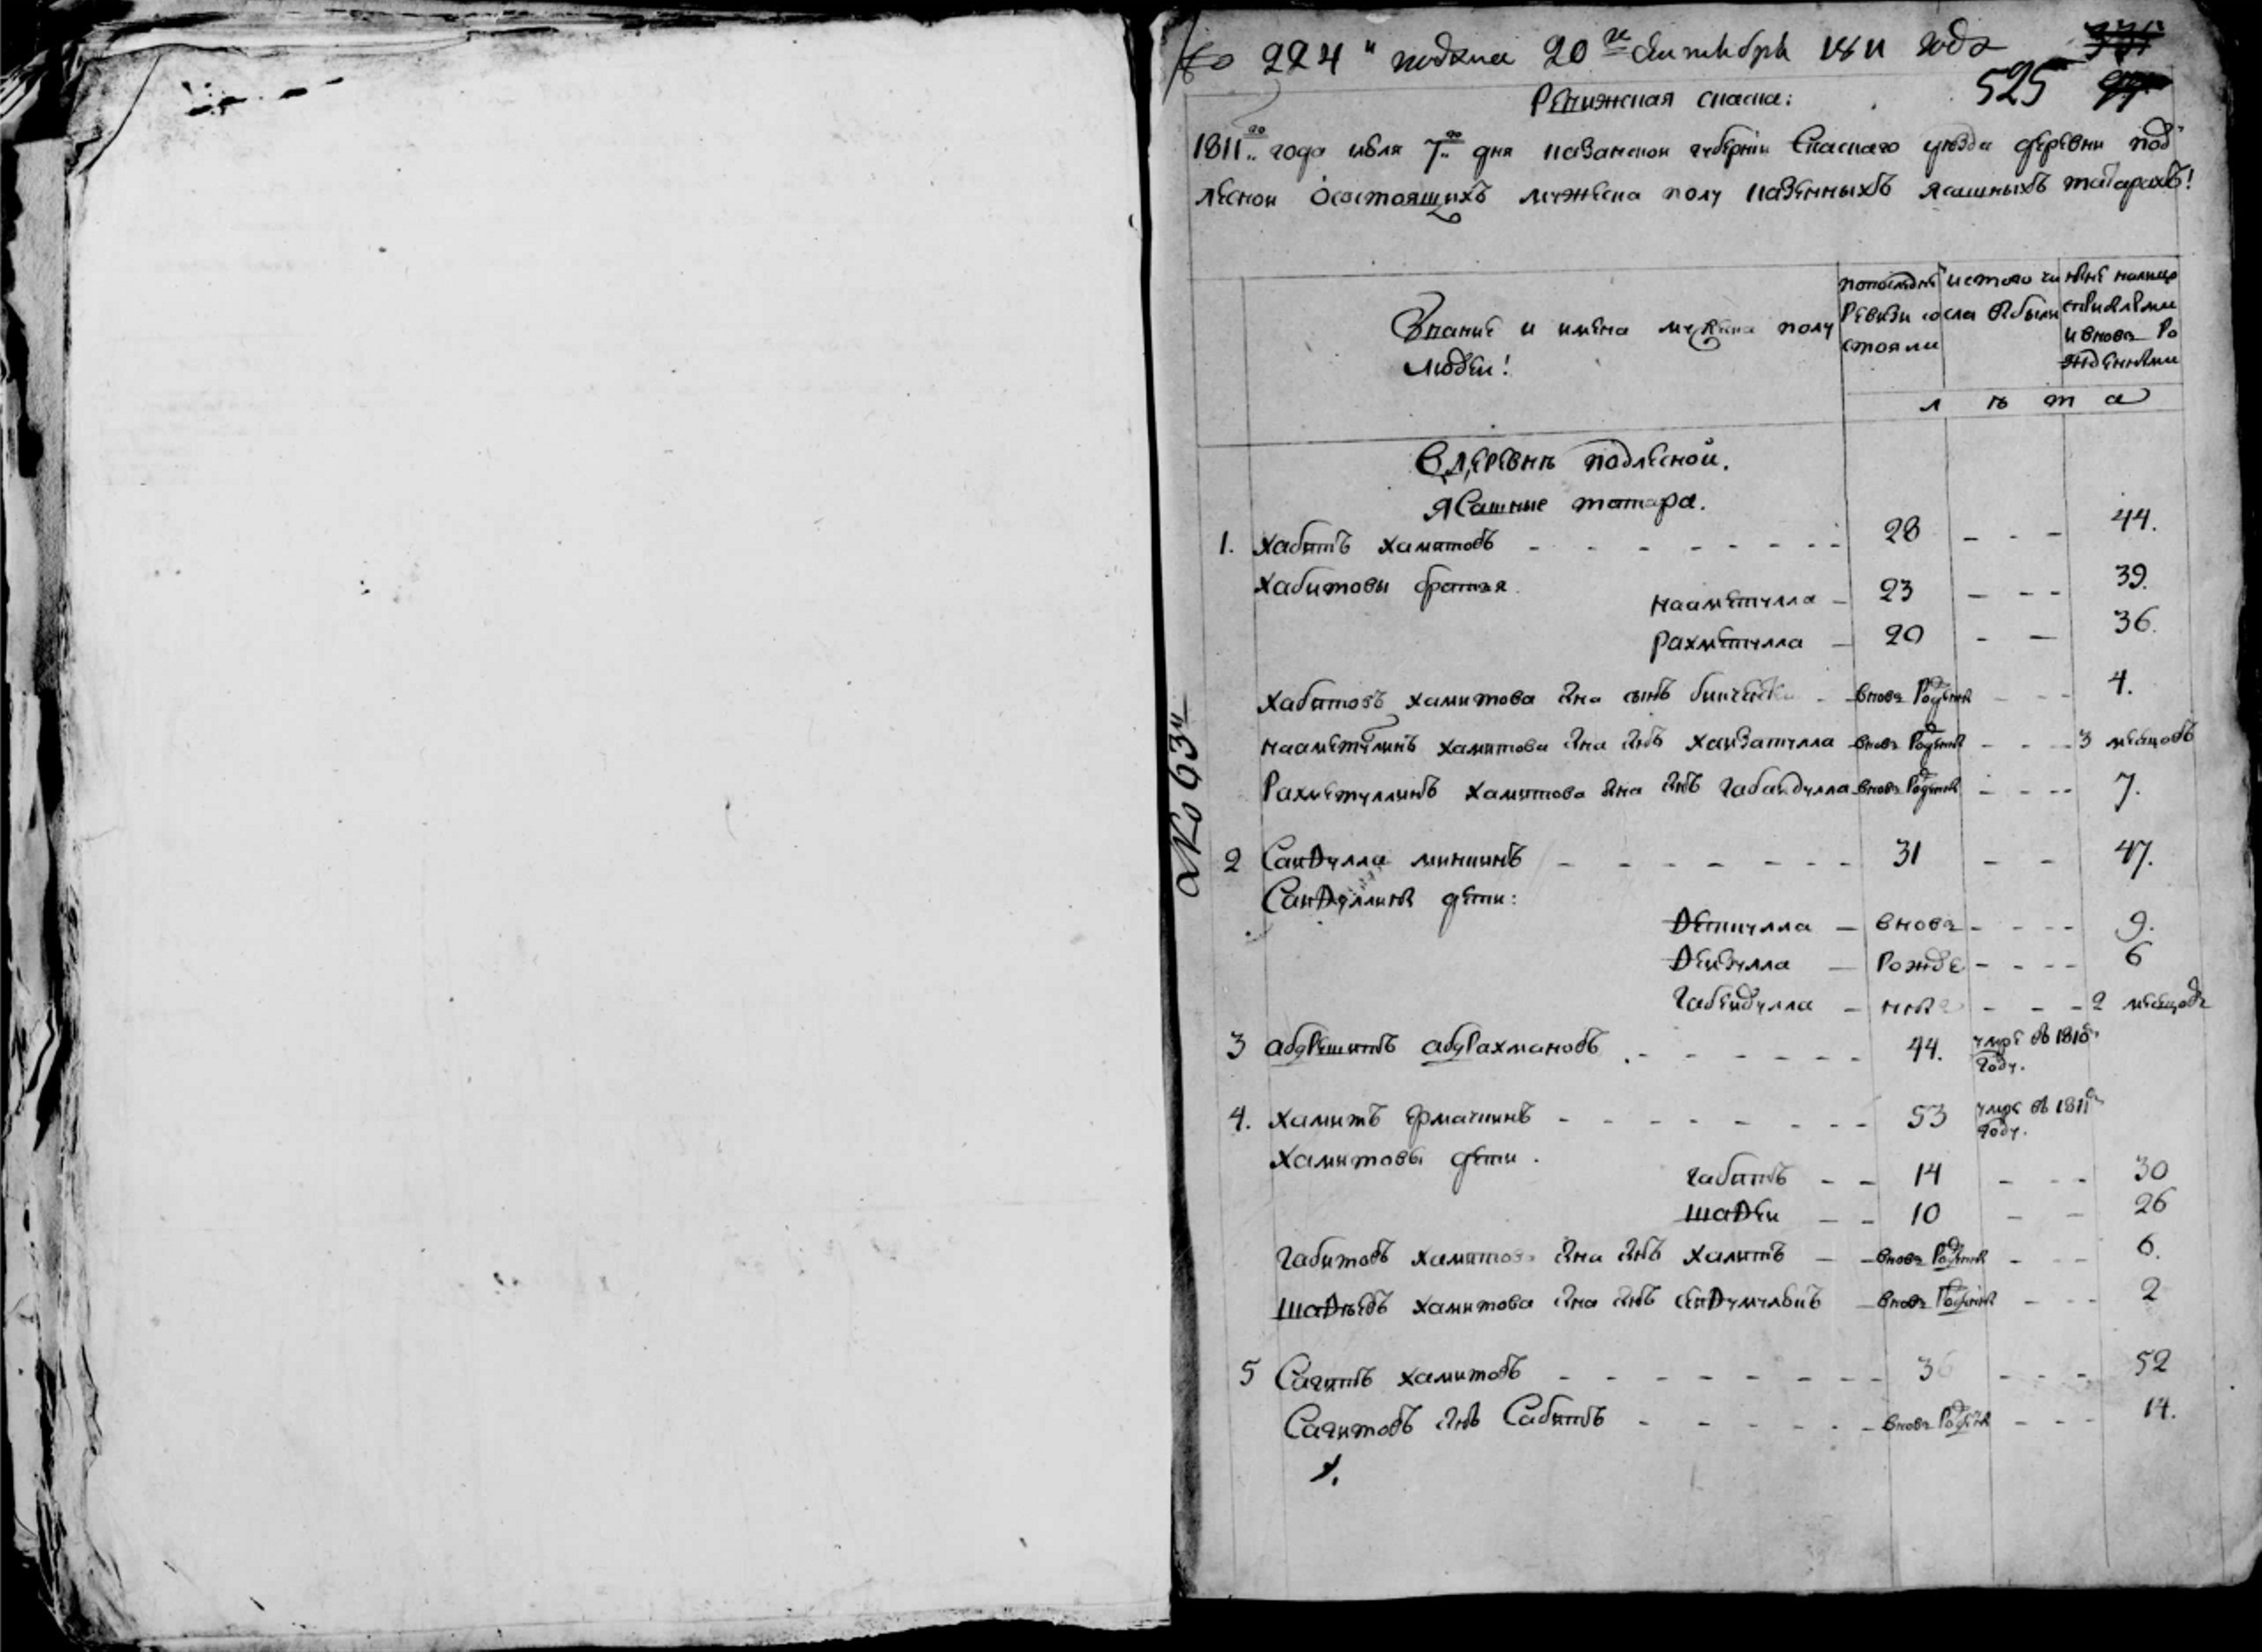 № 224 й подана 20 го Сентября 1811 года
525
Ревижская скаска:
1811 го года июля 7 го дня казанской губернии Спаскаго уезда деревни под
лесной о состоящихъ мужеска полу казенныхъ ясашныхъ татарахъ!
Звание и имена мужеска полу
людей!
по последней
Ревизи со
стояли
ис того чи
сла выбыли
ныне налицо
с прибылыми
и вновь Ро
жденными
л ѣ т а
В Деревнѣ подлесной.
Ясашные татара.
1. хабитъ хамитовъ - 28 - 44.
хабитовы братья.
нааметулла - 23 - 39.
рахметулла - 20 - 36.
хабитовъ хамитова сна сынъ - вновь Рожденъ - 4.
нааметулинъ хамитова сна снъ хаизатулла вновь Рожденъ - 3 месецовъ
Рахметуллинъ хамитова сна снъ габаидулла вновь Рожденъ - 7.
2 Саидулла мининъ - 31 - 47.
Саидуллины дети:
- вновь - 9.
- Рожде - 6
Габеидулла - ны - 2 месецовъ
3 абдрешитъ абдрахмановъ - 44. умре въ 1810 м
году.
4. хамитъ ермачинъ - 53 умре въ 1811 м
году.
хамитовы дети.
габитъ - 14 - 30
шадеи - 10 - 26
габитовъ хамитова сна снъ халитъ - вновь Рожденъ - 6.
шадѣевъ хамитова сна снъ - вновь Рожденъ - 2
5 Сагитъ хамитовъ - 36 - 52
Сагитовъ снъ Сабитъ - вновь Рожденъ - 14.
1.
№ 63 й